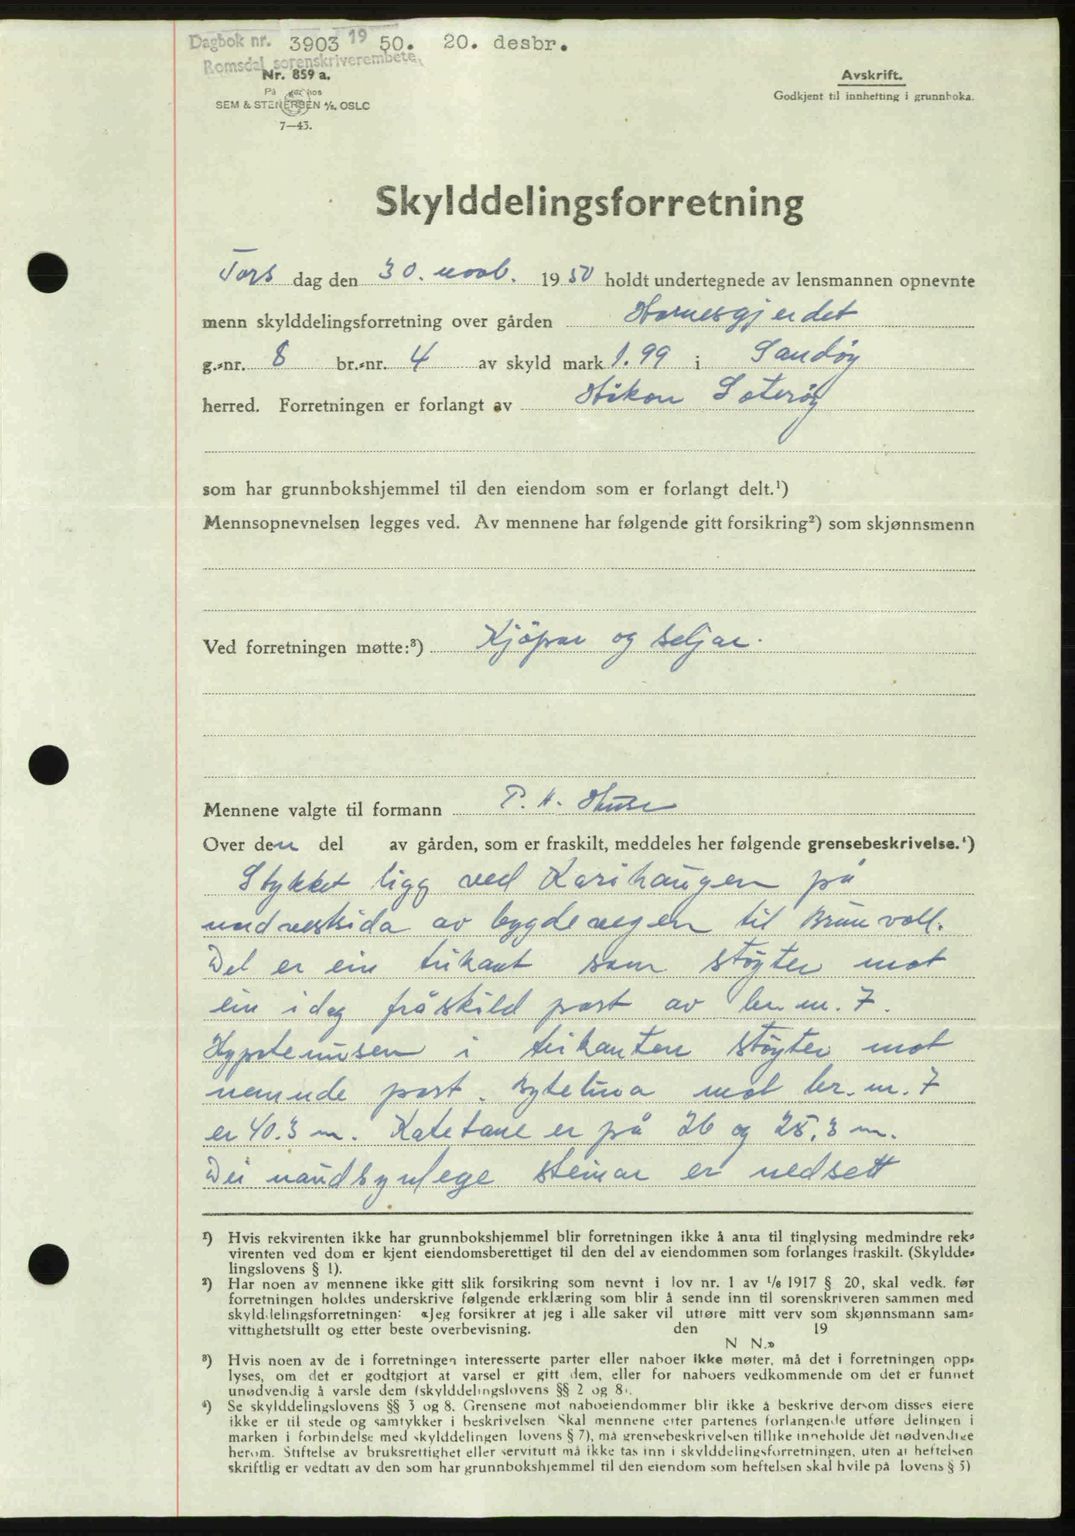 Dagbok nr. 3903 19 50. 20. desbr.
Romsdal sorenskriverembete.
Nr. 859 a.
På lager hos
SEM & STENERSEN A/S. OSLO
7—43.
Avskrift.
Godkjent til innhefting i grunnboka.
Skylddelingsforretning
Tors dag den 30. novb. 1950 holdt undertegnede av lensmannen opnevnte
menn skylddelingsforretning over gården Hornesgjerdet
g.-nr. 8 br.-nr. 4 av skyld mark 1.99 i Sandøy
herred. Forretningen er forlangt av Håkon Soterøy
som har grunnbokshjemmel til den eiendom som er forlangt delt.¹)
Mennsopnevnelsen legges ved. Av mennene har følgende gitt forsikring²) som skjønnsmenn
Ved forretningen møtte:³) Kjöpar og seljar.
Mennene valgte til formann P. H. Huse
Over den del av gården, som er fraskilt, meddeles her følgende grensebeskrivelse.⁴)
Stykket ligg ved Karihaugen på
nordvestsida av bygdevegen til Brunvoll.
Del er ein trikant som støyter mot
ein idag fråskild part av br. nr. 7.
Hypotenusen i trikanten støyter mot
nemnde part. Bytelina mot br. nr. 7
er 40.3 m. Katetane er på 26 og 25,3 m.
Dei naudsynlege steinar er nedsett
¹) Hvis rekvirenten ikke har grunnbokshjemmel blir forretningen ikke å anta til tinglysing medmindre rek-
virenten ved dom er kjent eiendomsberettiget til den del av eiendommen som forlanges fraskilt. (Skyldde-
lingslovens § 1).
²) Har noen av mennene ikke gitt slik forsikring som nevnt i lov nr. 1 av 1/6 1917 § 20, skal vedk. før
forretningen holdes underskrive følgende erklæring som blir å sende inn til sorenskriveren sammen med
skylddelingsforretningen: «Jeg forsikrer at jeg i alle saker vil utføre mitt verv som skjønnsmann sam-
vittighetsfullt og etter beste overbevisning. den 19
N N.»
³) Hvis noen av de i forretningen interesserte parter eller naboer ikke møter, må det i forretningen opp-
lyses, om det er godtgjort at varsel er gitt dem, eller for naboers vedkommende om det er funnet
unødvendig å varsle dem (skylddelingslovens §§ 2 og 8).
⁴) Se skylddelingslovens §§ 3 og 8. Grensene mot naboeiendommer blir ikke å beskrive dersom disses eiere
ikke er til stede og samtykker i beskrivelsen. Skal mennene etter partenes forlangende utføre delingen i
marken i forbindelse med skylddelingen (lovens § 7), må grensebeskrivelsen tillike inneholde det nødvendige
herom. Stiftelse av bruksrettighet eller servitutt må ikke tas inn i skylddelingsforretningen, uten at heftelsen
skriftlig er vedtatt av den som har grunnbokshjemmel til den eiendom som heftelsen skal hvile på (lovens § 5)